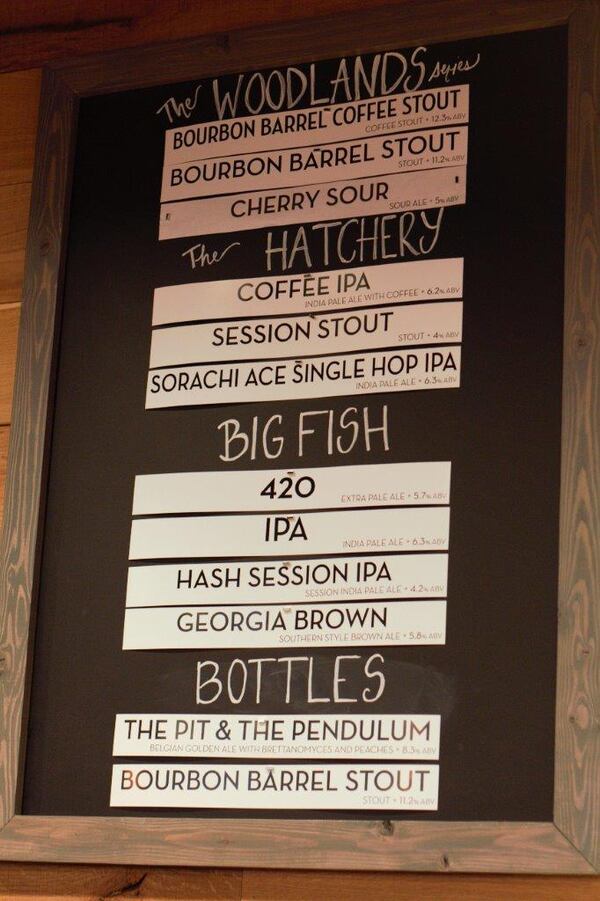 The WOODLANDS Series
BOURBON BARREL COFFEE STOUT
COFFEE STOUT • 12.3% ABV
BOURBON BARREL STOUT
STOUT • 11.2% ABV
CHERRY SOUR
SOUR ALE • 5% ABV
The HATCHERY
COFFEE IPA
INDIA PALE ALE WITH COFFEE • 6.2% ABV
SESSION STOUT
STOUT • 4% ABV
SORACHI ACE SINGLE HOP IPA
INDIA PALE ALE • 6.3% ABV
BIG FISH
420
EXTRA PALE ALE • 5.7% ABV
IPA
INDIA PALE ALE • 6.3% ABV
HASH SESSION IPA
SESSION INDIA PALE ALE • 4.2% ABV
GEORGIA BROWN
SOUTHERN STYLE BROWN ALE • 5.8% ABV
BOTTLES
THE PIT & THE PENDULUM
BELGIAN GOLDEN ALE WITH BRETTANOMYCES AND PEACHES • 8.3% ABV
BOURBON BARREL STOUT
STOUT • 11.2% ABV